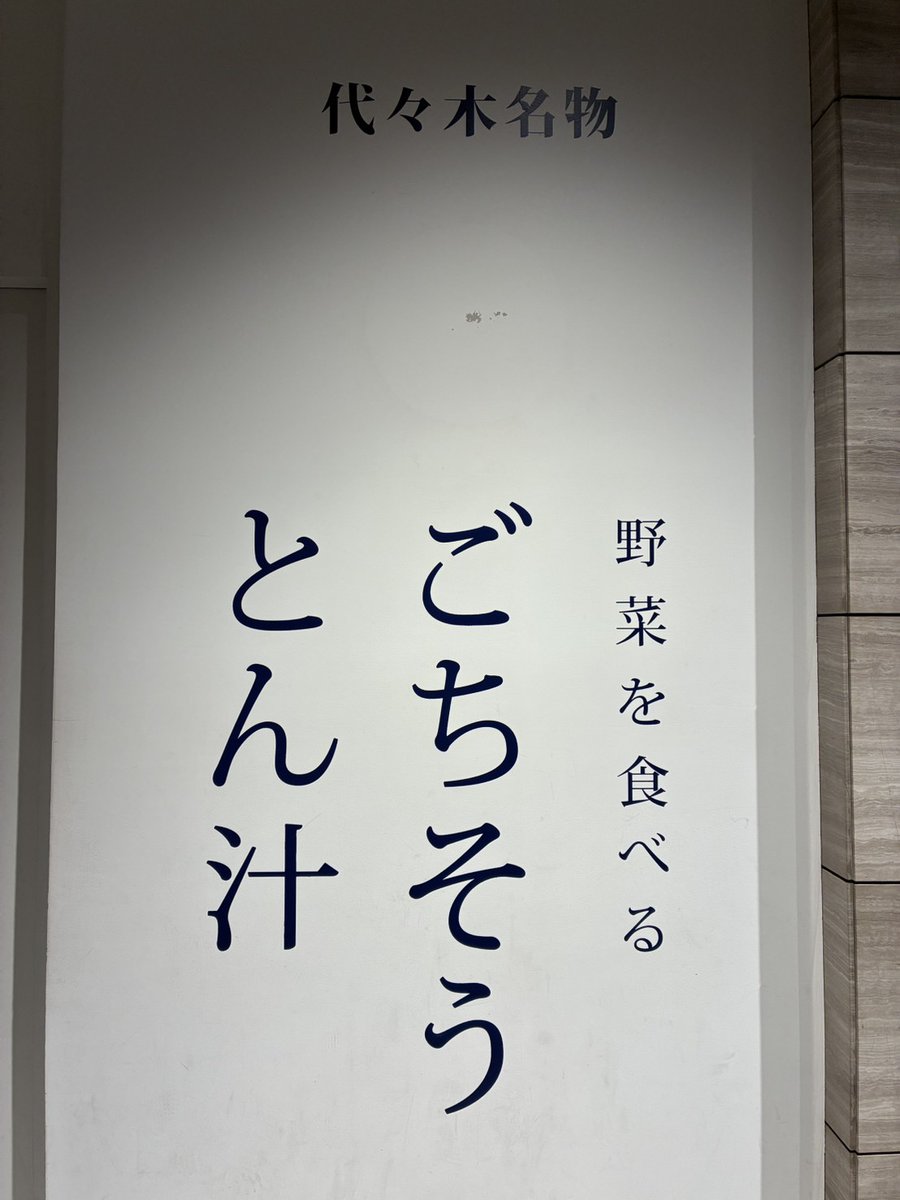 代々木名物
野菜を食べる
ごちそう
とん汁